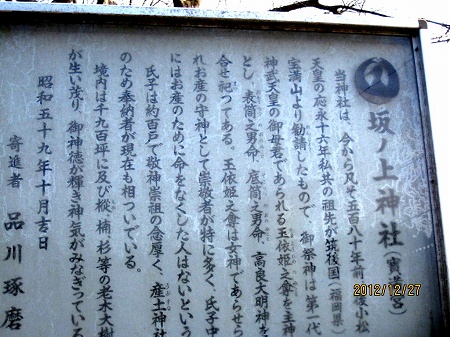 坂ノ上神社(寳満宮)
当神社は、今から凡そ五百八十年前、後小松
天皇の応永十六年私共の祖先が筑後国(福岡県)
宝満山より勧請したもので、御祭神は第一代
神武天皇の御母君であられる玉依姫之會を主神
とし、表筒之男命、底筒之男命、高良大明神を
合せ祀つてある。玉依姫之會は女神であらせら
れお産の守神として崇敬者が特に多く、氏子中
にはお産のために命をなくした人はないという
氏子は約百戸で敬神崇祖の念厚く、産土神社
のため奉納者が現在も相ついでいる。
境内は千九百坪に及び樅、楠、杉等の老木大樹
が生い茂り、御神徳が輝き神気がみなぎっている
昭和五十九年十月吉日
寄進者 品川琢磨
2012/12/27